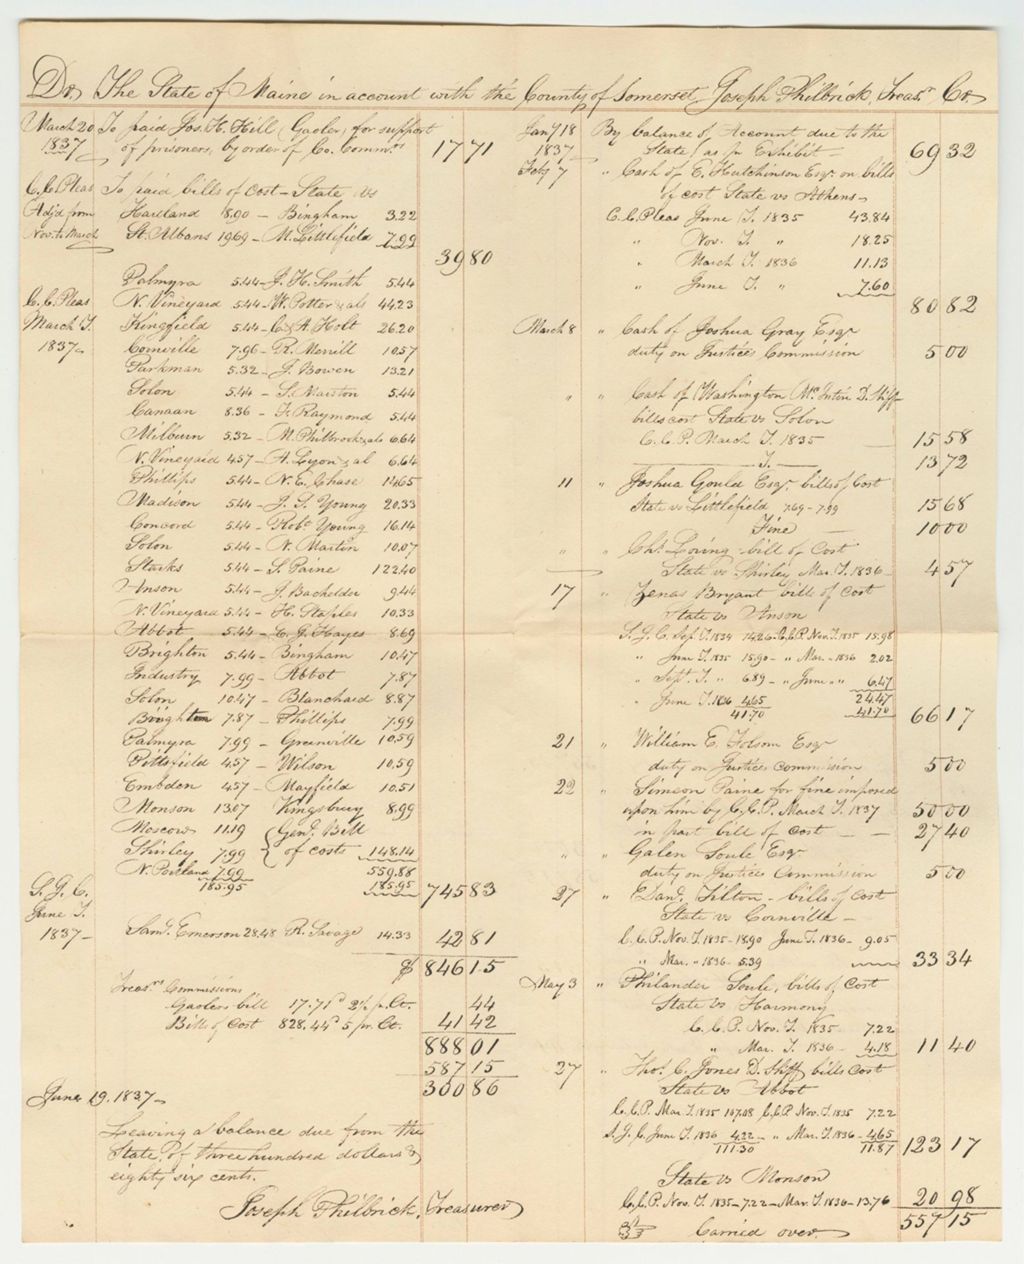 Dr. The State of Maine in account with the County of Somerset, Joseph Philbrick, Treasr. Cr.
March 20 To paid Jos. H. Hill (Gaoler) for support
1837 of prisoners, by order of Co. Commrs. 17 71
C.C. Pleas To paid bills of Cost - State vs
Adjd from Hartland 8.90 - Bingham 3.22
Nov. to March St. Albans 19.69 - M. Littlefield 7.99
39 80
Palmyra 5.44 - J. H. Smith 5.44
C.C. Pleas N. Vineyard 5.44 - W. Potter & als 44.23
March T. Kingfield 5.44 - C. A. Holt 26.20
1837 Cornville 7.96 - R. Merrill 10.57
Parkman 5.32 - J. Bowen 13.21
Solon 5.44 - S. Marston 5.44
Canaan 8.36 - F. Raymond 5.44
Milburn 5.32 - M. Philbrook & als 6.64
N. Vineyard 4.57 - A. Lyon & al 6.64
Phillips 5.44 - N. E. Chase 14.65
Madison 5.44 - J. S. Young 20.33
Concord 5.44 - Robt. Young 16.14
Solon 5.44 - N. Martin 10.07
Starks 5.44 - S. Paine 122.40
Anson 5.44 - J. Bachelder 9.44
N. Vineyard 5.44 - H. Staples 10.33
Abbot 5.44 - E. J. Hayes 8.69
Brighton 5.44 - Bingham 10.47
Industry 7.99 - Abbot 7.87
Solon 10.47 - Blanchard 8.87
Brighton 7.87 - Phillips 7.99
Palmyra 7.99 - Greenville 10.59
Pittsfield 4.57 - Wilson 10.59
Embden 4.57 - Mayfield 10.51
Monson 13.07 Kingsbury 8.99
Moscow 11.19 Genl. Bill
Shirley 7.99 of costs 148.14
N. Portland 7.99 559.88
185.95 185.95 745 83
S.J.C.
June T.
1837 - Saml. Emerson 28.48 R. Savage 14.33 42 81
$ 846 15
Treasrs Commissions
Gaolers bill 17.71 @ 2½ pr. Ct. 44
Bills of Cost 828.44 @ 5 pr. Ct. 41 42
888 01
587 15
300 86
June 19. 1837
Leaving a balance due from the
State, of three hundred dollars &
eighty six cents.
Joseph Philbrick, Treasurer
Jany 18 By balance of Account due to the
1837 State, as pr Exhibit - 69 32
Feby 7 " Cash of E. Hutchinson Esqr. on bills
of cost State vs Athens
C.C. Pleas June T. 1835 43.84
" Nov. T. " 18.25
" March T. 1836 11.13
" June T. " 7.60
80 82
March 8 " Cash of Joshua Gray Esqr
duty on Justices Commission 5 00
" " Cash of Washington Mc Intire D. Shff
bills cost State vs Solon
C.C.P. March T. 1835 - 15 58
T. 13 72
11 " Joshua Gould Esqr. bills of Cost
State vs Littlefield 7.69 - 7.99 15 68
Fine - 10 00
" " Chs. Loring - bill of Cost
State vs Shirley Mar. T. 1836 - 4 57
17 " Zenas Bryant bill of Cost
State vs Anson
S.J.C. Sep. T. 1834 14.26 - C.C.P. Nov. T. 1835 15.98
" June T. 1835 15.90 - " Mar. - 1836 2.02
" Sept. T. " 6.89 - " June - " 6.47
" June T. 1836 4.65 24.47
41.70 41.70 66 17
21 " William C. Folsom Esqr
duty on Justices Commission 5 00
22 " Simson Paine for fine imposed
upon him by C.C.P. March T. 1837 50 00
in part bill of cost - - 27 40
" " Galen Soule Esqr
duty on Justices Commission 5 00
27 " E. Tilton - bills of Cost
State vs Cornville -
C.C.P. Nov. T. 1835 - 18.90 June T. 1836 - 9.05
" Mar. " 1836 - 5.39 33 34
May 3 " Philander Soule, bills of Cost
State vs Harmony
C.C.P. Nov. T. 1835 7.22
" Mar. T. 1836 - 4.18 11 40
27 " Tho. C. Jones D. Shff bills cost
State vs Abbot
C.C.P. Mar. T. 1835 107.08 C.C.P. Nov. T. 1835 7.22
S.J.C. June T. 1836 4.22 - " Mar. T. 1836 - 4.65
111.30 11.87 123 17
State vs Monson
C.C.P. Nov. T. 1835 - 7.22 - Mar. T. 1836 - 13.76 20 98
557 15
Carried over